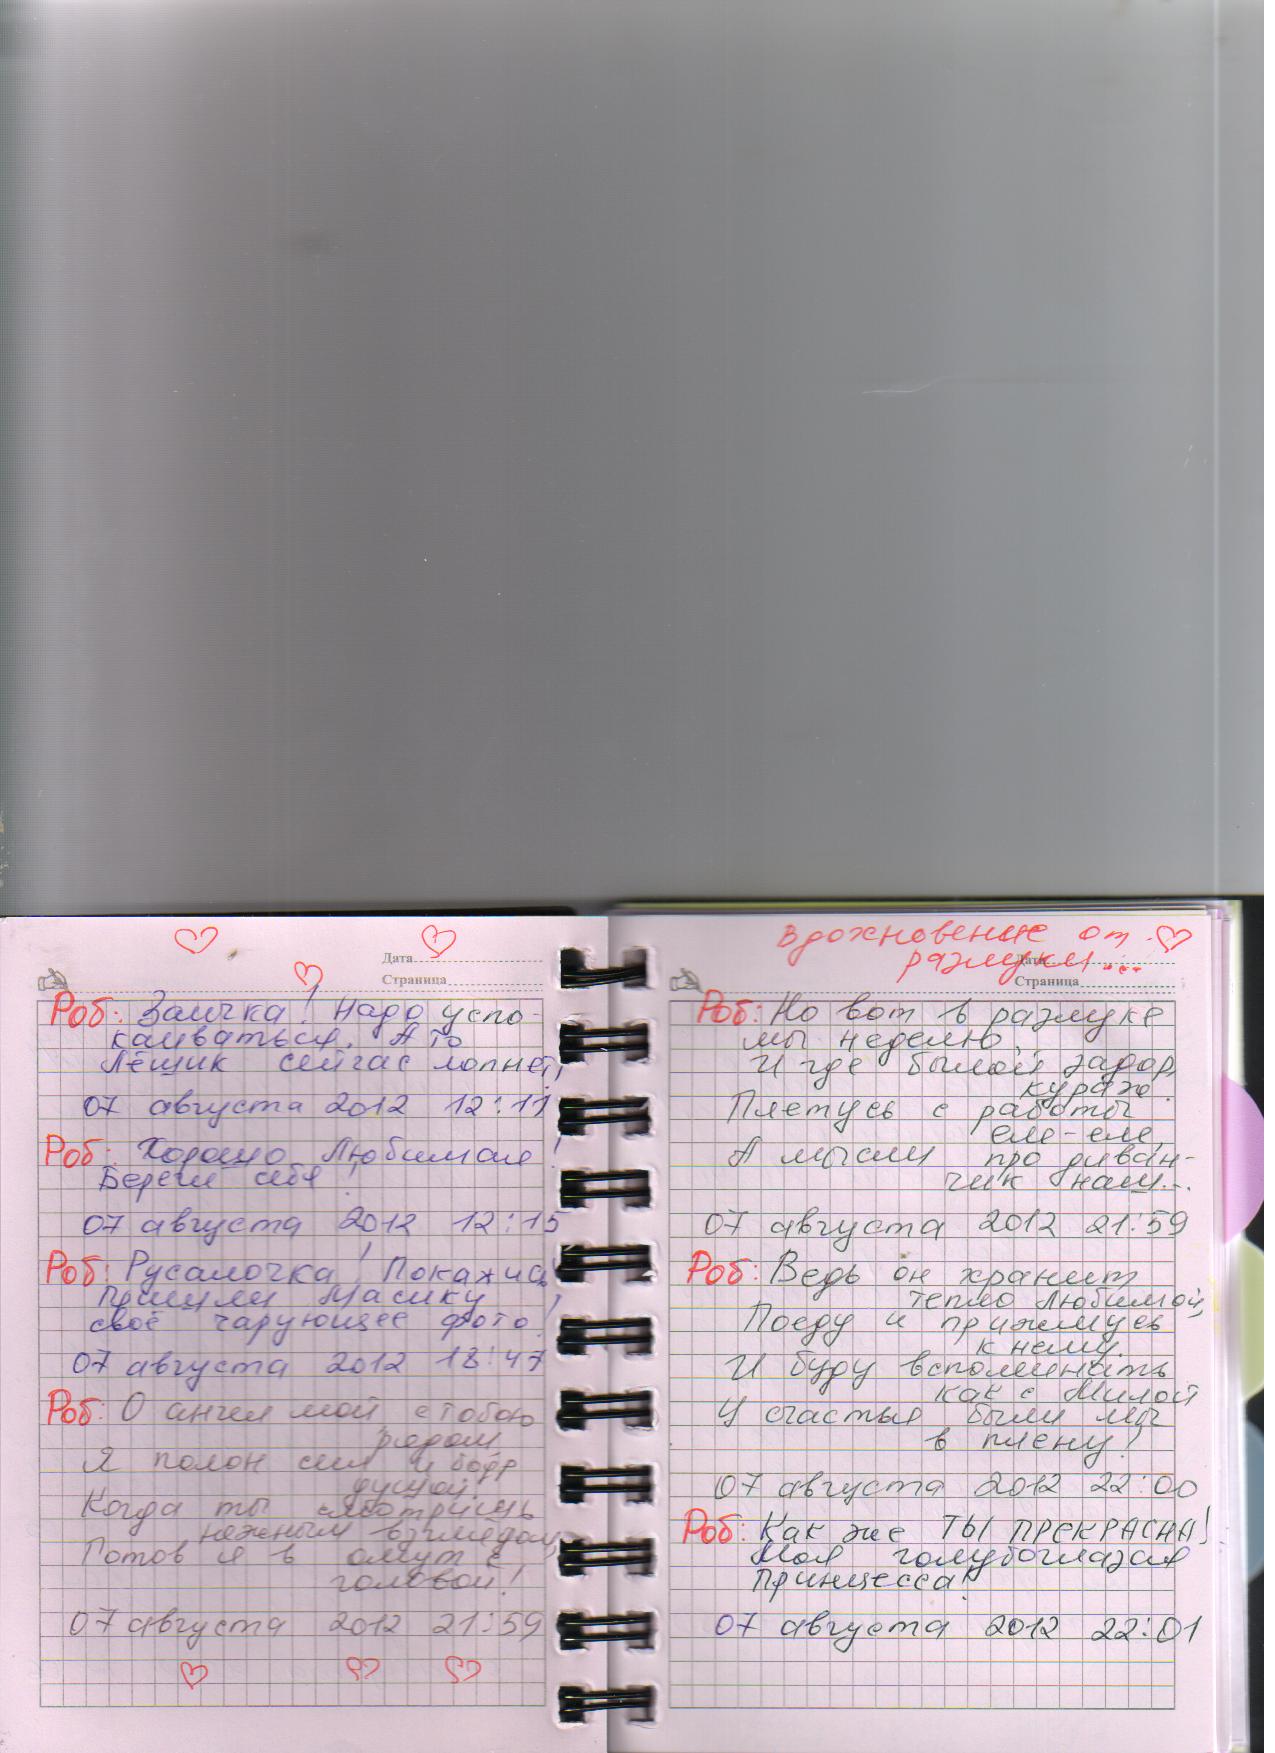 Дата
Страница
Роб: Заичка! Надо успо-
каиваться. А то
Лёщик сейчас лопнет!
07 августа 2012 12:11
Роб: Хорошо Любимая!
Береги себя!
07 августа 2012 12:15
Роб: Русалочка! Покажись,
пришли Масику
своё чарующее фото!
07 августа 2012 18:47
Роб: О ангел мой с тобою
рядом
Я полон сил и бодр
душой!
Когда ты смотришь
нежным взглядом
Готов я в омут с
головой!
07 августа 2012 21:59
Вдохновение от
разлуки...
Дата
Страница
Роб: Но вот в разлуке
мы неделю,
И где былой задор,
кураж.
Плетусь с работы
еле-еле,
А мысли про диван-
чик наш...
07 августа 2012 21:59
Роб: Ведь он хранит
тепло Любимой,
Поеду и прижмусь
к нему.
И буду вспоминать
как с Милой
У счастья были мы
в плену!
07 августа 2012 22:00
Роб: Как же ТЫ ПРЕКРАСНА!
Моя голубоглазая
принцесса!
07 августа 2012 22:01